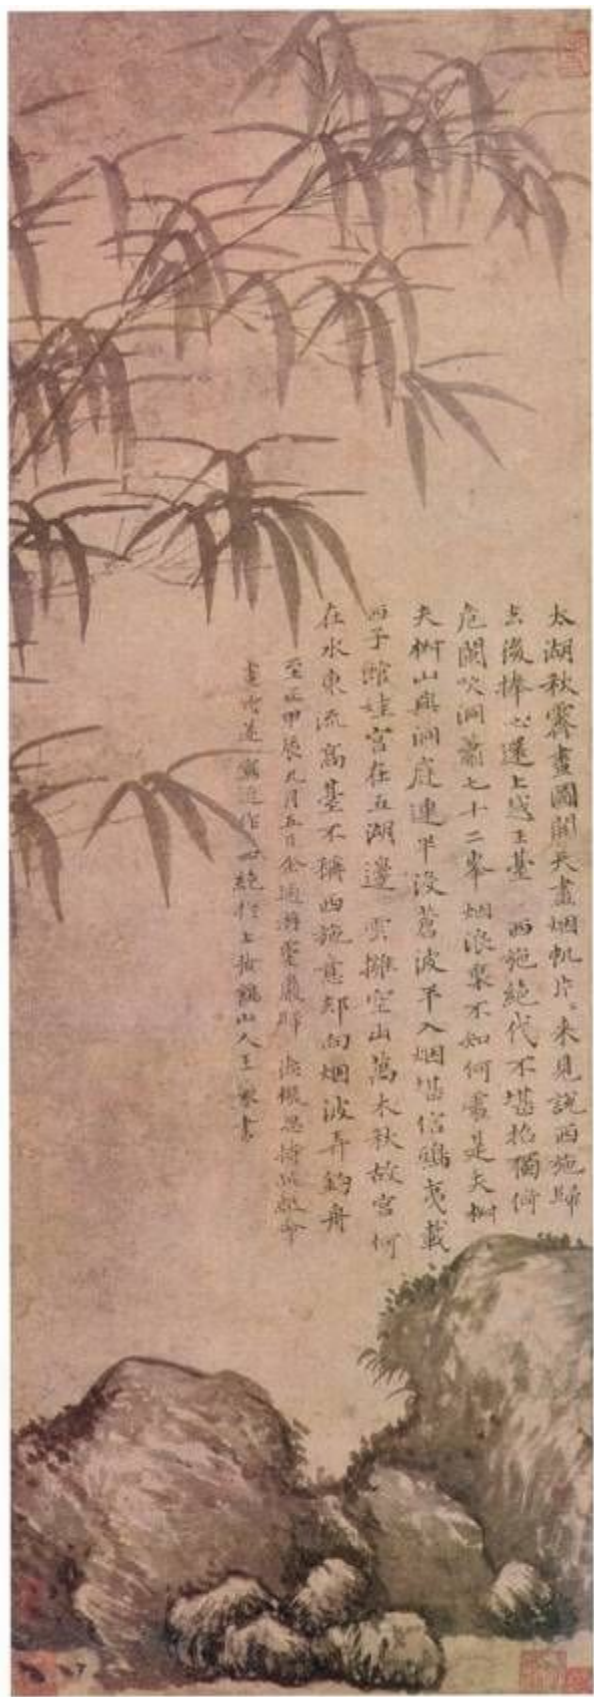 太湖秋霽畫圖開天盡烟帆片々來見說西施歸
去後捧心還上越王臺 西施絕代不堪招獨倚
危闌吹洞簫七十二峯烟浪裏不知何處是夫椒
夫椒山與洞庭連半沒蒼波半入烟堪信鴟夷載
西子館娃宮在五湖邊 雲擁空山萬木秋故宮何
在水東流高臺不稱西施意却向烟波弄釣舟
至正甲辰九月五日余適游靈巖歸德機忽持此紙命
畫竹遂寫近作四絕於上黃鶴山人王蒙書